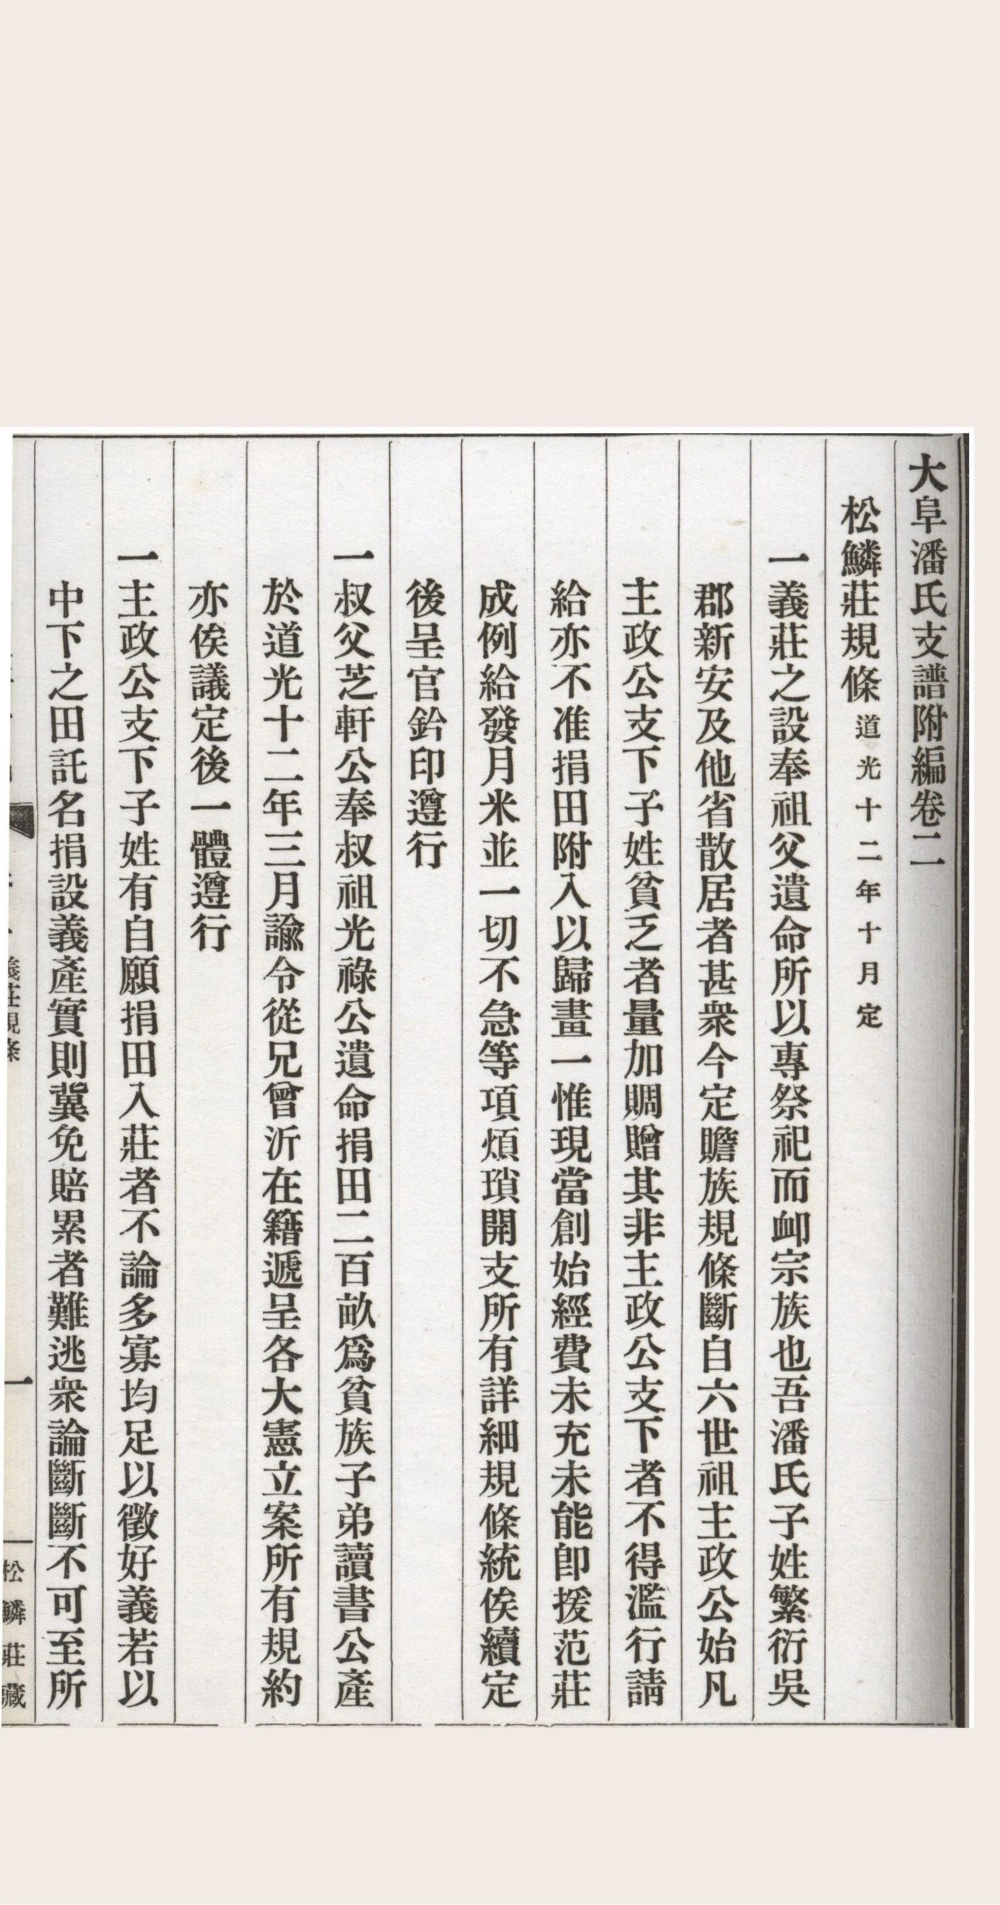 大阜潘氏支譜附編卷二
松鱗莊規條道光十二年十月定
一義莊之設奉祖父遺命所以專祭祀而卹宗族也吾潘氏子姓繁衍吳
郡新安及他省散居者甚衆今定贍族規條斷自六世祖主政公始凡
主政公支下子姓貧乏者量加賙贈其非主政公支下者不得濫行請
給亦不准捐田附入以歸畫一惟現當創始經費未充未能卽援范莊
成例給發月米並一切不急等項煩瑣開支所有詳細規條統俟續定
後呈官鈐印遵行
一叔父芝軒公奉叔祖光祿公遺命捐田二百畝爲貧族子弟讀書公產
於道光十二年三月諭令從兄曾沂在籍遞呈各大憲立案所有規約
亦俟議定後一體遵行
一主政公支下子姓有自願捐田入莊者不論多寡均足以徵好義若以
中下之田託名捐設義產實則冀免賠累者難逃衆論斷斷不可至所
義莊規條
一
松鱗莊藏